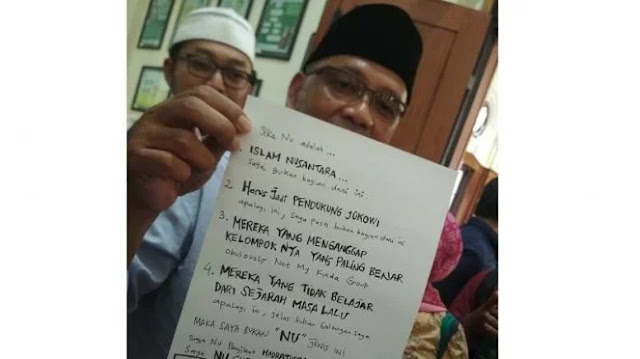 Jika NU adalah...
1. ISLAM NUSANTARA...
Saya bukan bagian dari ini
2. Harus Jadi PENDUKUNG JOKOWI
apalagi ini, saya pasti bukan bagian dari ni
3. MEREKA YANG MENGANGGAP
KELOMPOK NYA YANG PALING BENAR
obviously Not My Kinda Group
4. MEREKA YANG TIDAK BELAJAR
DARI SEJARAH MASA LALU
apalagi ini, jelas bukan Golongan saya
MAKA SAYA BUKAN "NU" JENIS INI
Saya NU
Saya NU